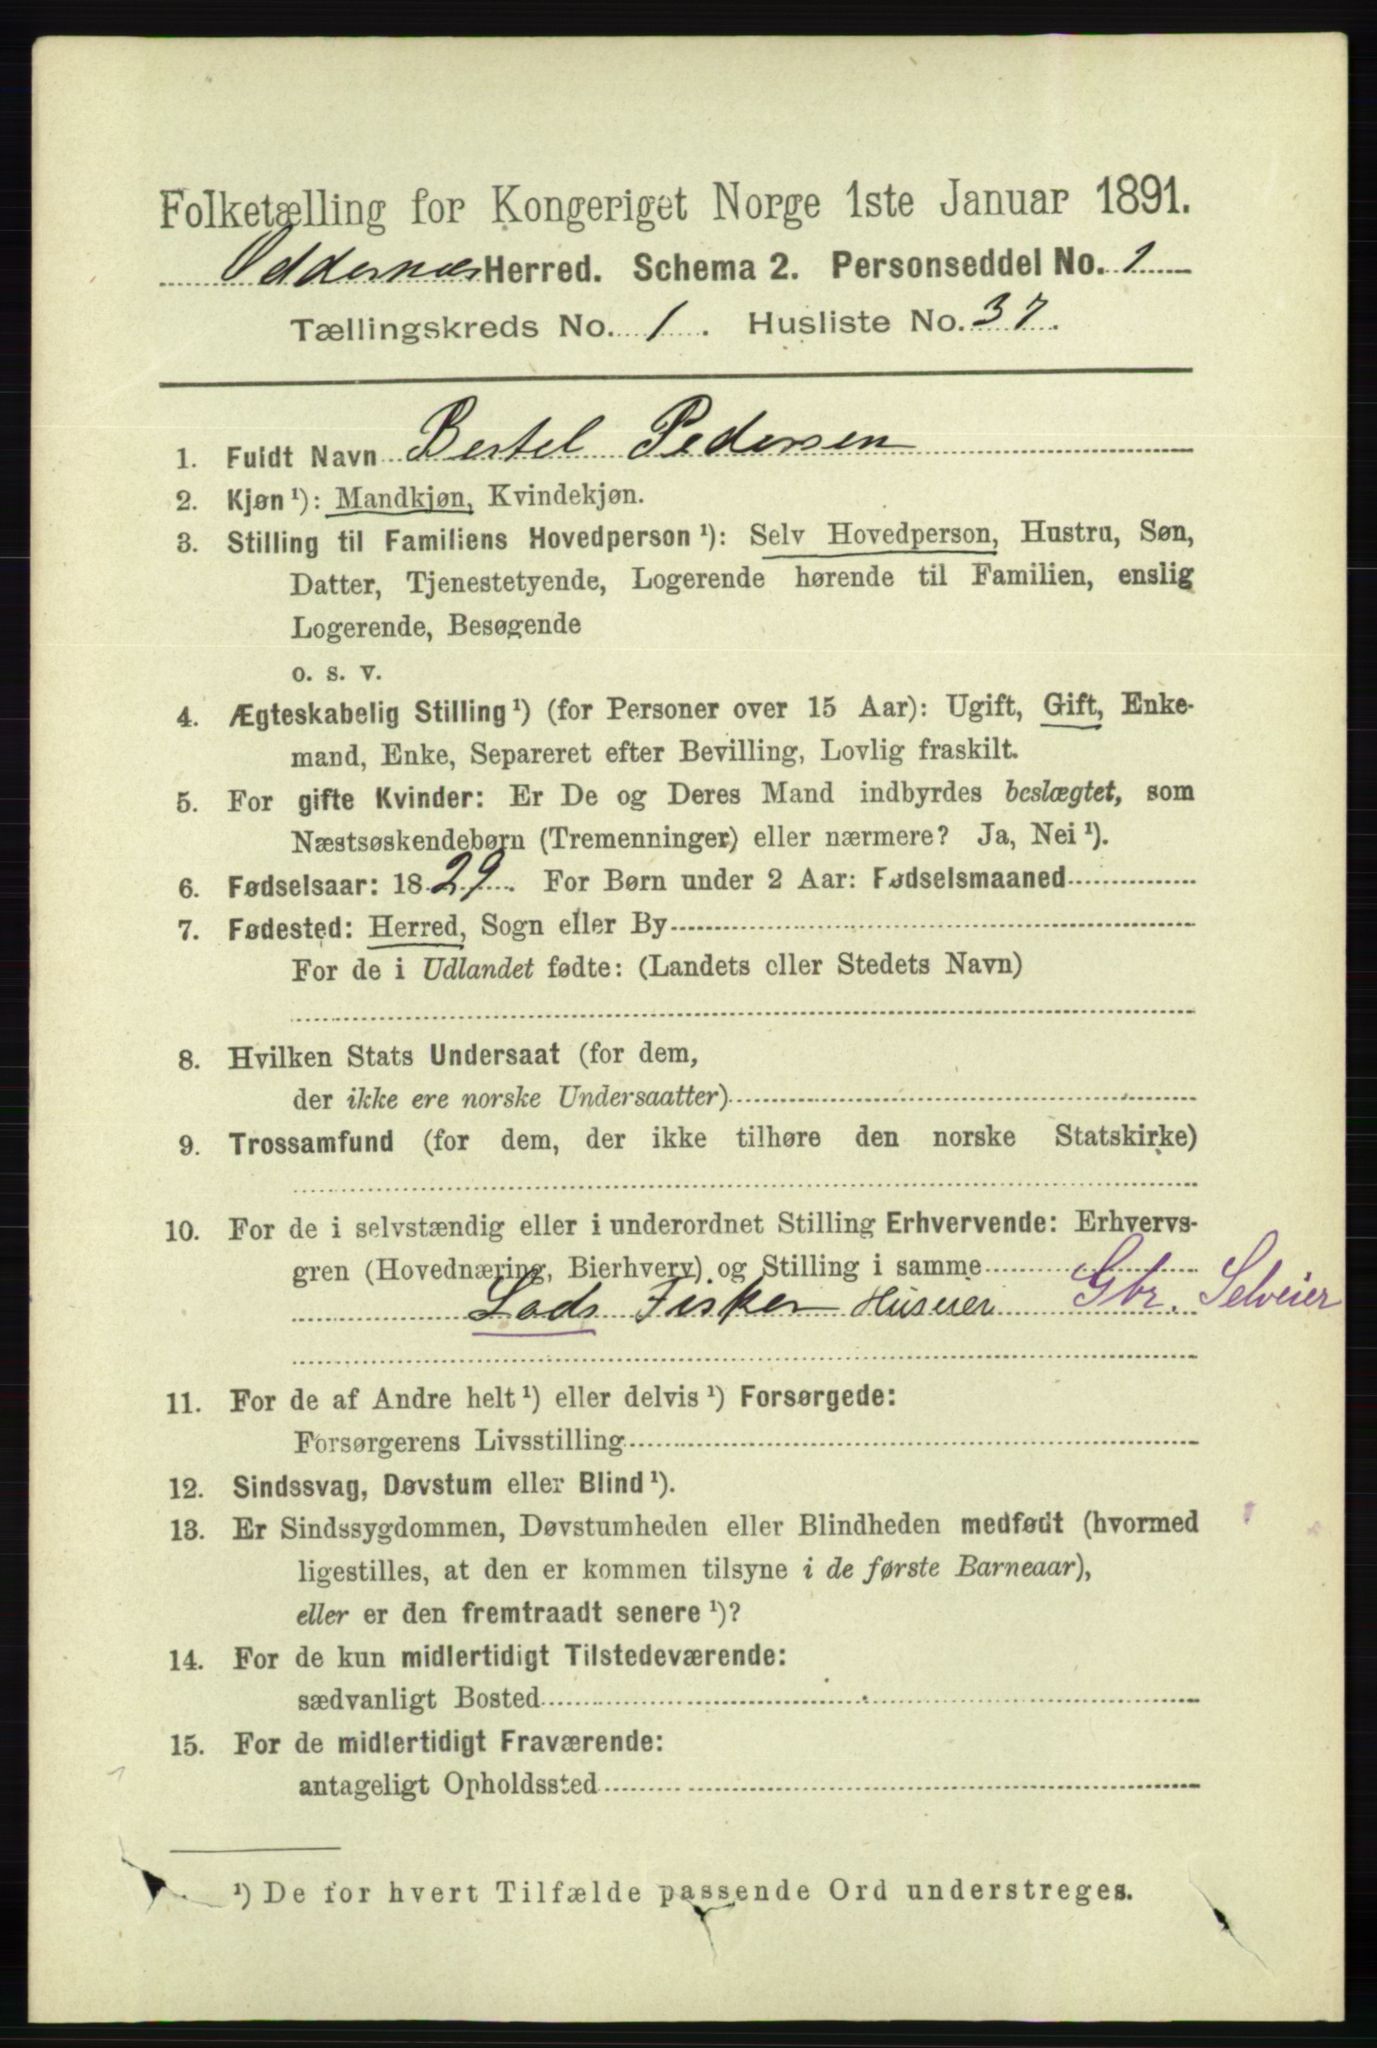 Folketælling for Kongeriget Norge 1ste Januar 1891.
Oddernæs Herred. Schema 2. Personseddel No. 1
Tællingskreds No. 1. Husliste No. 37.
1. Fuldt Navn Bertel Pedersen
2. Kjøn ¹): Mandkjøn, Kvindekjøn.
3. Stilling til Familiens Hovedperson ¹): Selv Hovedperson, Hustru, Søn,
Datter, Tjenestetyende, Logerende hørende til Familien, enslig
Logerende, Besøgende
o. s. v.
4. Ægteskabelig Stilling ¹) (for Personer over 15 Aar): Ugift, Gift, Enke-
mand, Enke, Separeret efter Bevilling, Lovlig fraskilt.
5. For gifte Kvinder: Er De og Deres Mand indbyrdes beslægtet, som
Næstsøskendebørn (Tremenninger) eller nærmere? Ja, Nei ¹).
6. Fødselsaar: 1829. For Børn under 2 Aar: Fødselsmaaned
7. Fødested: Herred, Sogn eller By
For de i Udlandet fødte: (Landets eller Stedets Navn)
8. Hvilken Stats Undersaat (for dem,
der ikke ere norske Undersaatter)
9. Trossamfund (for dem, der ikke tilhøre den norske Statskirke)
10. For de i selvstændig eller i underordnet Stilling Erhvervende: Erhvervs-
gren (Hovednæring, Bierhverv) og Stilling i samme
Lods Fisker Huseier Gbr. Selveier
11. For de af Andre helt ¹) eller delvis ¹) Forsørgede:
Forsørgerens Livsstilling
12. Sindssvag, Døvstum eller Blind ¹).
13. Er Sindssygdommen, Døvstumheden eller Blindheden medfødt (hvormed
ligestilles, at den er kommen tilsyne i de første Barneaar),
eller er den fremtraadt senere ¹)?
14. For de kun midlertidigt Tilstedeværende:
sædvanligt Bosted
15. For de midlertidigt Fraværende:
antageligt Opholdssted
¹) De for hvert Tilfælde passende Ord understreges.